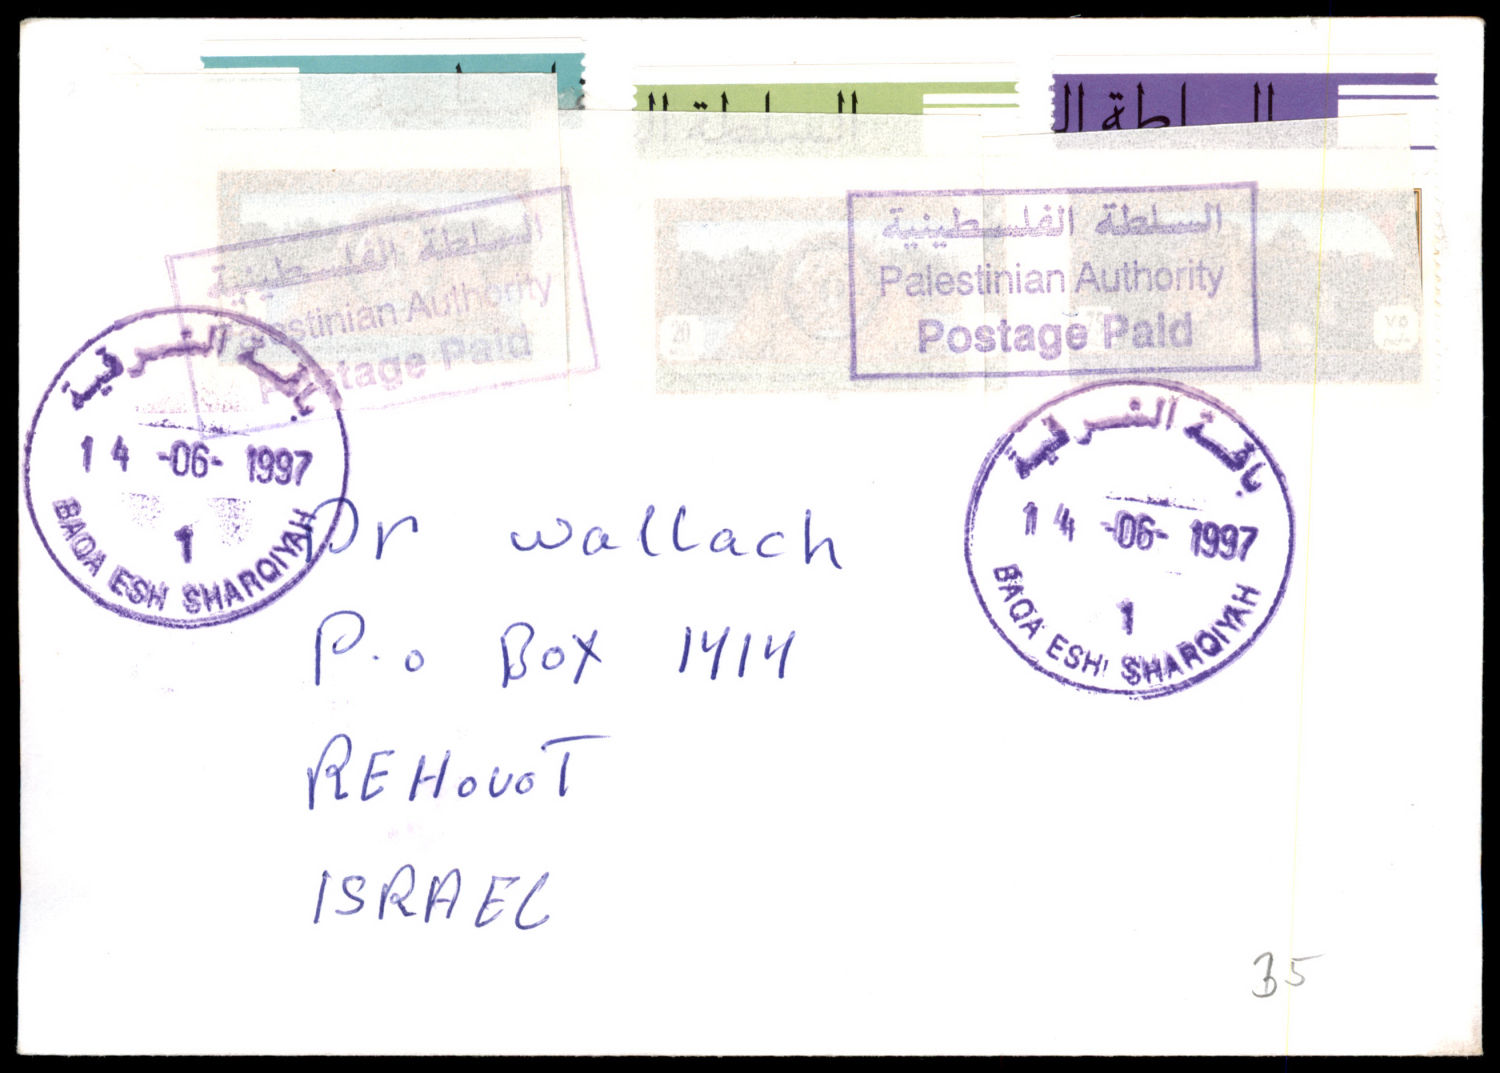 السلطة ال
السلطة ال
السلطة الفلسطينية
Palestinian Authority
Postage Paid
السلطة الفلسطينية
Palestinian Authority
Postage Paid
20
75
٧٥
باقة الشرقية
14 -06- 1997
1
BAQA ESH SHARQIYAH
باقة الشرقية
14 -06- 1997
1
BAQA ESH SHARQIYAH
Dr wallach
P.o Box 1414
REHovoT
ISRAEL
B5